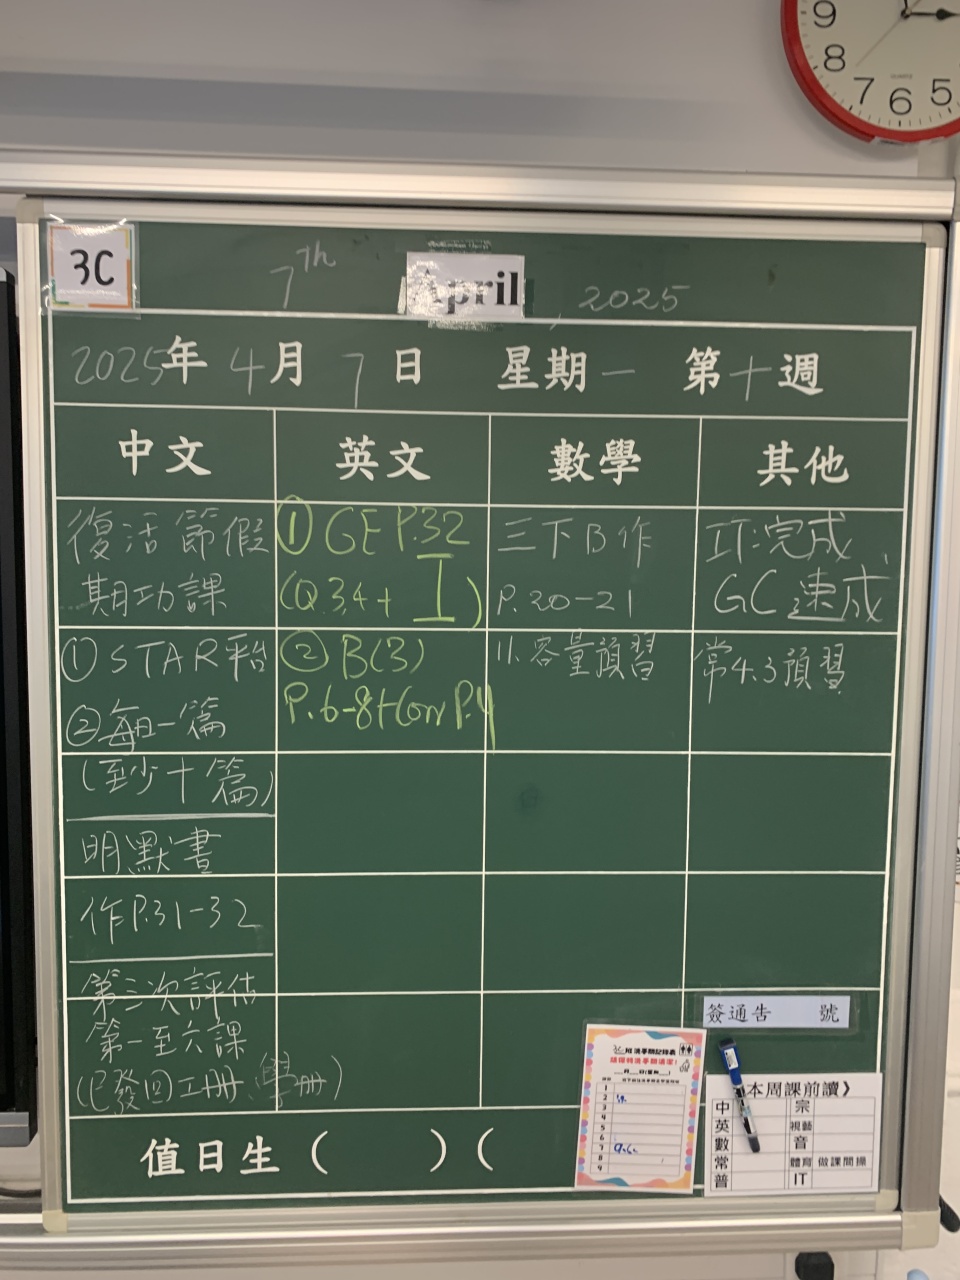 9
8
7 6 5
3C
7th April, 2025
2025年 4月 7日 星期一 第十週
中文 英文 數學 其他
復活節假
期功課
①STAR平台
②每日一篇
(至少十篇)
明默書
作P.31-32
第三次評估
第一至六課
(已發回工冊、學冊)
①GE P.32
(Q.3,4 + I)
②B(3)
P.6-8+Corr P.4
三下B作
P.20-21
11.容量預習
IT:完成
GC速成
常4.3預習
簽通告 號
值日生( )(
1
2
3
4
5
6
7
8
9
本周課前讀》
中 宗
英 視藝
數 音
常 體育 做課間操
普 IT